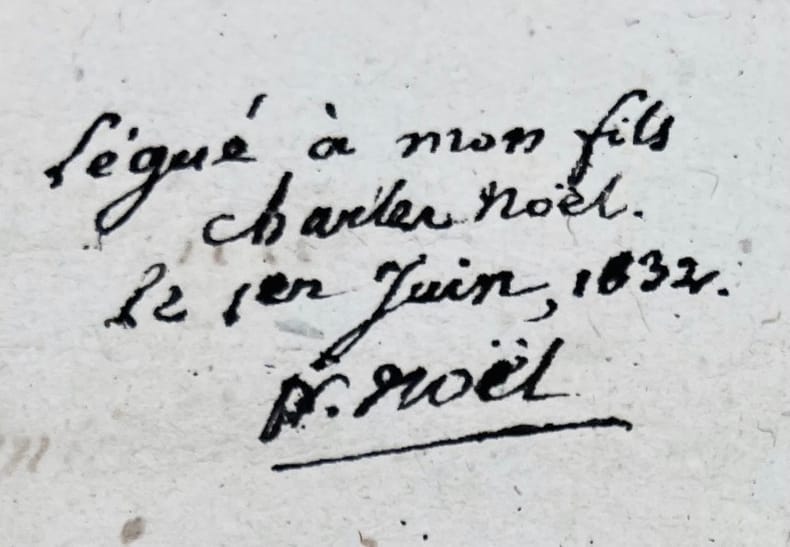 légué à mon fils
Charles Noël.
le 1er Juin, 1832.
Noël